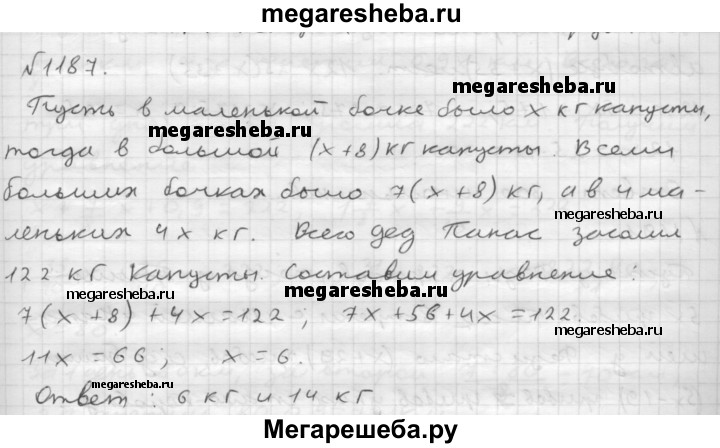 megaresheba.ru
№1187.
Пусть в маленькой бочке было x кг капусты,
megaresheba.ru
megaresheba.ru
тогда в большой (x+8) кг капусты. Всеми
больших бочках было 7(x+8) кг, а в 4 ма-
леньких 4x кг. Всего дед Панас засолил
122 кг капусты. Составим уравнение:
megaresheba.ru
megaresheba.ru
7(x+8)+4x=122; 7x+56+4x=122.
11x=66; x=6.
megaresheba.ru
Ответ: 6 кг и 14 кг
Мегарешеба.ру